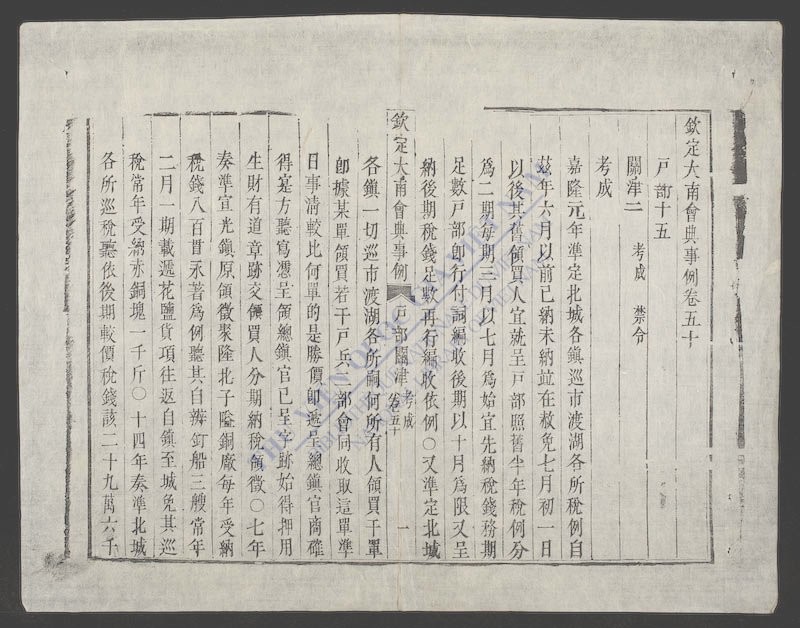 欽定大南會典事例卷五十
戸部十五
關津二 考成 禁令
考成
嘉隆元年準定北城各鎮巡市渡湖各所稅例自
茲年六月以前已納未納並在赦免七月初一日
以後其舊領買人宜就呈戸部照舊半年稅例分
爲二期每期三月以七月爲始宜先納稅錢務期
足數戸部卽行付詞編收後期以十月爲限又呈
納後期稅錢足數再行編收依例〇又準定北城
欽定大南會典事例 戸部關津 考成 卷五十 一
各鎮一切巡市渡湖各所嗣何所有人領買干單
卽據某單領買若干戸兵二部會同收取這單準
日事清較比何單的是勝價卽遞呈總鎮官商確
得寔方聽寫憑呈領總鎮官已呈字跡始得押用
生財有道章跡交領買人分期納稅領徵〇七年
奏準宣光鎮原領徵聚隆北子隘銅廠每年受納
稅錢八百貫永著爲例聽其自辨釘船三艘常年
二月一期載遞花鹽貨項往返自鎮至城免其巡
稅常年受納赤銅塊一千斤〇十四年奏準北城
各所巡稅聽依後期較價稅錢該二十九萬六千